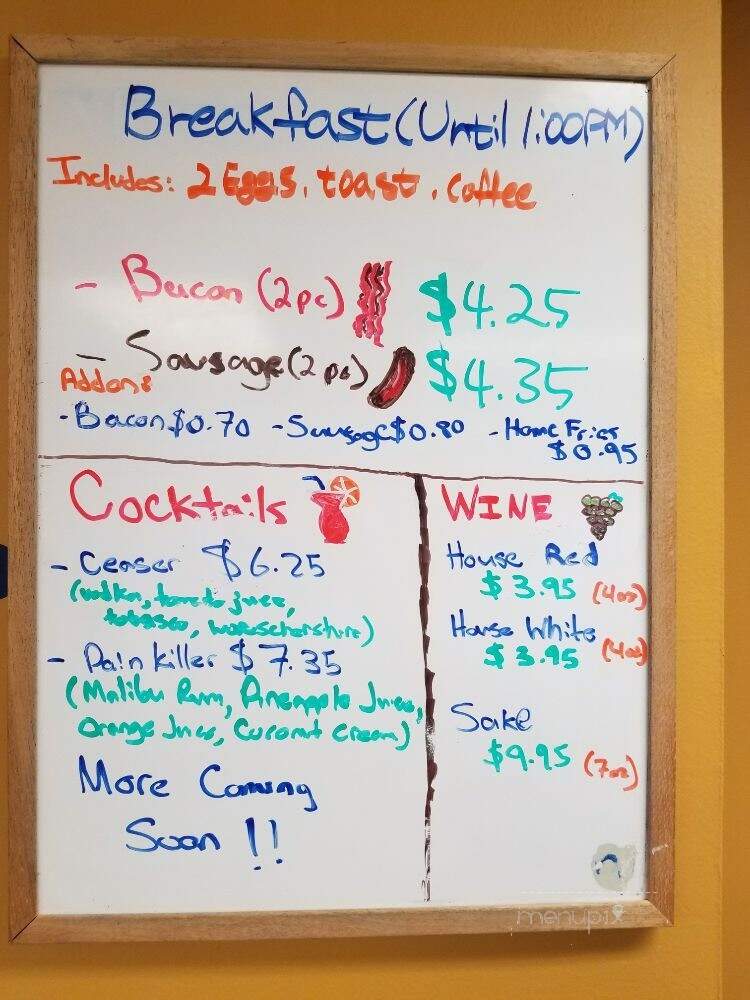 Breakfast (Until 1:00PM)
Includes: 2 Eggs, toast, Coffee
- Bacon (2pc) $4.25
- Sausage (2pc) $4.35
Addons
- Bacon $0.70 - Sausage $0.80 - Home Fries
$0.95
Cocktails
- Ceaser $6.25
(vodka, tomato juice,
tobasco, worschershire)
- Pain killer $7.35
(Malibu Rum, Pineapple Juice,
Orange Juice, Coconut Cream)
More Coming
Soon !!
WINE
House Red
$3.95 (4oz)
House White
$3.95 (4oz)
Sake
$9.95 (7oz)
menupix